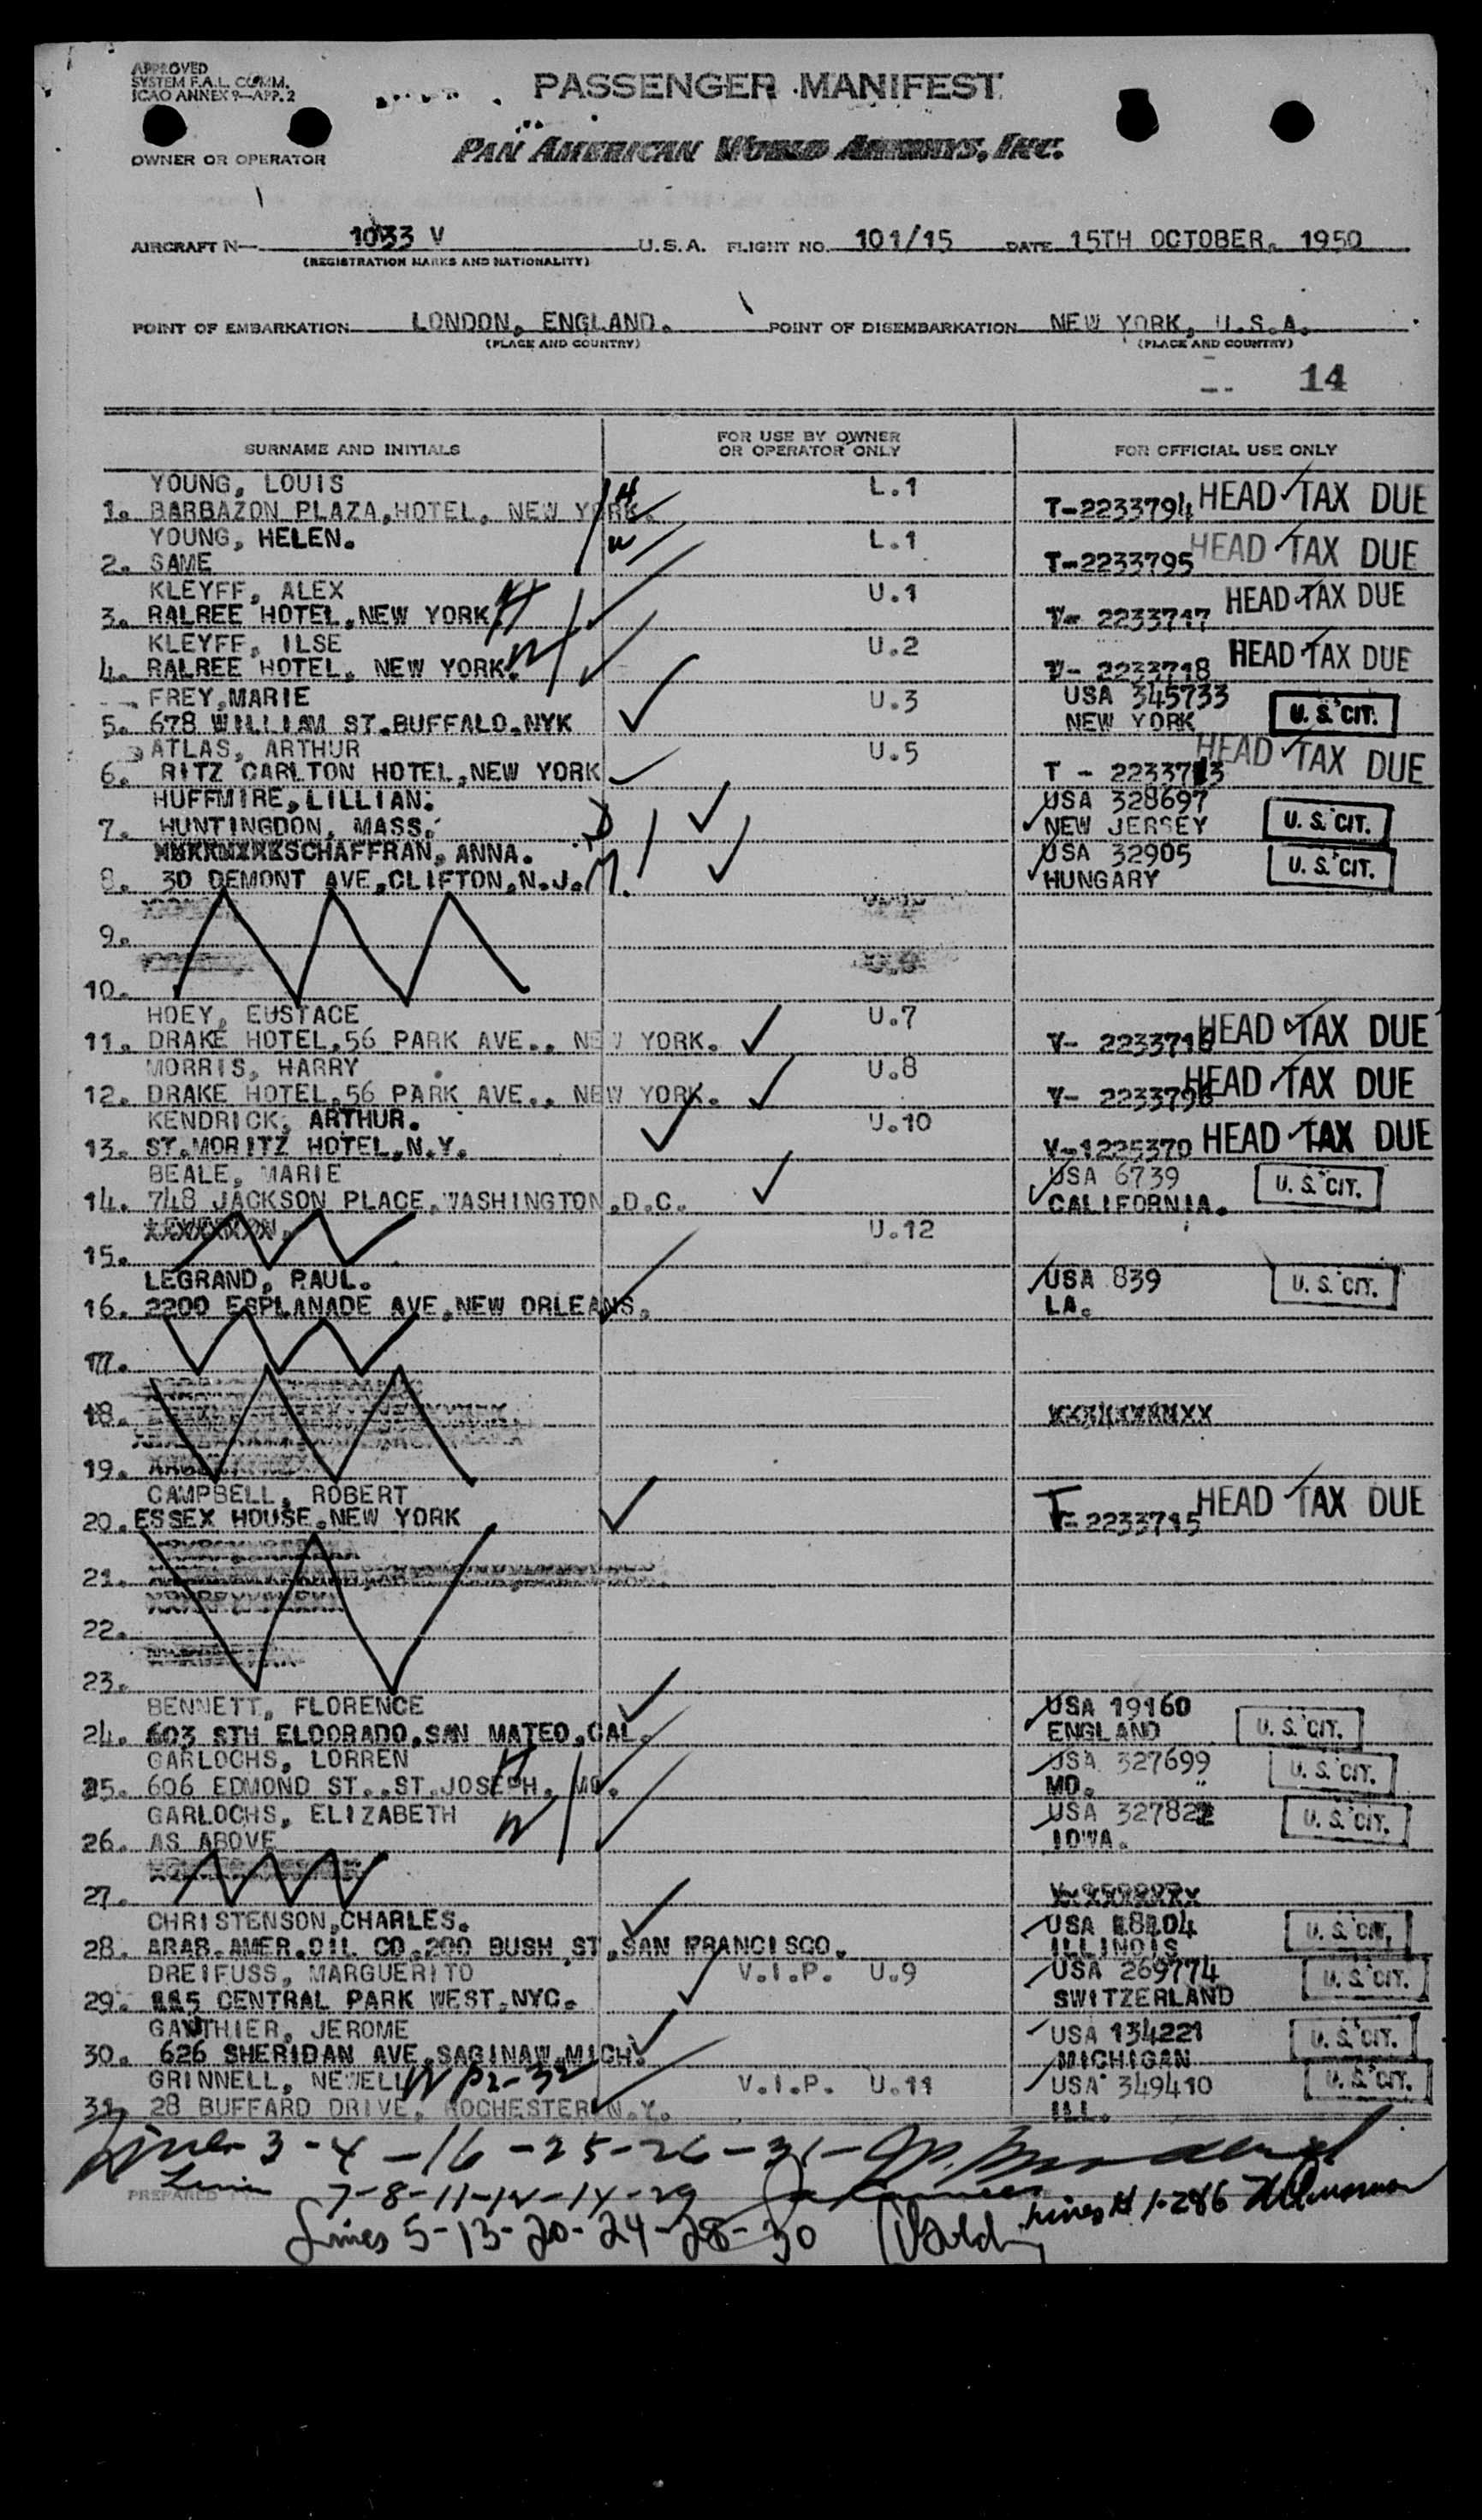 APPROVED
SYSTEM F.A.L. COMM.
ICAO ANNEX 9—APP. 2
PASSENGER MANIFEST
OWNER OR OPERATOR
PAN AMERICAN WORLD AIRWAYS, INC.
AIRCRAFT N— 1033 V U.S.A. FLIGHT NO. 101/15 DATE 15TH OCTOBER, 1950
(REGISTRATION MARKS AND NATIONALITY)
POINT OF EMBARKATION LONDON, ENGLAND. POINT OF DISEMBARKATION NEW YORK, U.S.A.
(PLACE AND COUNTRY) (PLACE AND COUNTRY)
14
SURNAME AND INITIALS FOR USE BY OWNER OR OPERATOR ONLY FOR OFFICIAL USE ONLY
YOUNG, LOUIS L.1
1. BARBAZON PLAZA,HOTEL, NEW YORK. H T-2233794 HEAD TAX DUE
YOUNG, HELEN. W L.1
2. SAME T-2233795 HEAD TAX DUE
KLEYFF, ALEX H U.1
3. RALREE HOTEL,NEW YORK 2233717 HEAD TAX DUE
KLEYFF, ILSE W U.2
4. RALREE HOTEL, NEW YORK. 2233718 HEAD TAX DUE
FREY,MARIE U.3 USA 345733
5. 678 WILLIAM ST.BUFFALO.NYK NEW YORK U.S. CIT.
ATLAS, ARTHUR U.5
6. RITZ CARLTON HOTEL,NEW YORK T - HEAD TAX DUE
HUFFMIRE,LILLIAN. USA 328697
7. HUNTINGDON, MASS. D NEW JERSEY U.S. CIT.
SCHAFFRAN, ANNA. USA 32905
8. 30 DEMONT AVE,CLIFTON,N.J. M. HUNGARY U.S. CIT.
9.
10.
HOEY, EUSTACE U.7
11. DRAKE HOTEL,56 PARK AVE., NEW YORK. V- HEAD TAX DUE
MORRIS, HARRY U.8
12. DRAKE HOTEL,56 PARK AVE., NEW YORK. V- HEAD TAX DUE
KENDRICK, ARTHUR. U.10
13. ST.MORITZ HOTEL,N.Y. V-1225370 HEAD TAX DUE
BEALE, MARIE USA 6739
14. 748 JACKSON PLACE,WASHINGTON,D.C. CALIFORNIA. U.S. CIT.
U.12
15.
LEGRAND, PAUL. USA 839
16. 2200 ESPLANADE AVE,NEW ORLEANS. LA. U.S. CIT.
17.
18.
19.
CAMPBELL, ROBERT
20. ESSEX HOUSE,NEW YORK T-2233715 HEAD TAX DUE
21.
22.
23.
BENNETT, FLORENCE USA 19160
24. 603 STH ELDORADO,SAN MATEO,CAL. ENGLAND U.S. CIT.
GARLOCHS, LORREN H USA 327699
25. 606 EDMOND ST.,ST.JOSEPH, MO. MO. U.S. CIT.
GARLOCHS, ELIZABETH W USA 327822
26. AS ABOVE IOWA. U.S. CIT.
27.
CHRISTENSON,CHARLES. USA
28. ARAB.AMER.OIL CO.200 BUSH ST,SAN FRANCISCO. ILLINOIS U.S. CIT.
DREIFUSS, MARGUERITO V.I.P. U.9 USA 269774
29. CENTRAL PARK WEST,NYC. SWITZERLAND U.S. CIT.
GAUTHIER, JEROME USA 134221
30. 626 SHERIDAN AVE,SAGINAW,MICH. MICHIGAN U.S. CIT.
GRINNELL, NEWELL W P2-32 V.I.P. U.11 USA 349410
31. 28 BUFFARD DRIVE, ROCHESTER N.Y. ILL. U.S. CIT.
Lines 3-4-16-25-26-31-
PREPARED
7-8-11-12-14-29
Lines 5-13-20-24-28-30